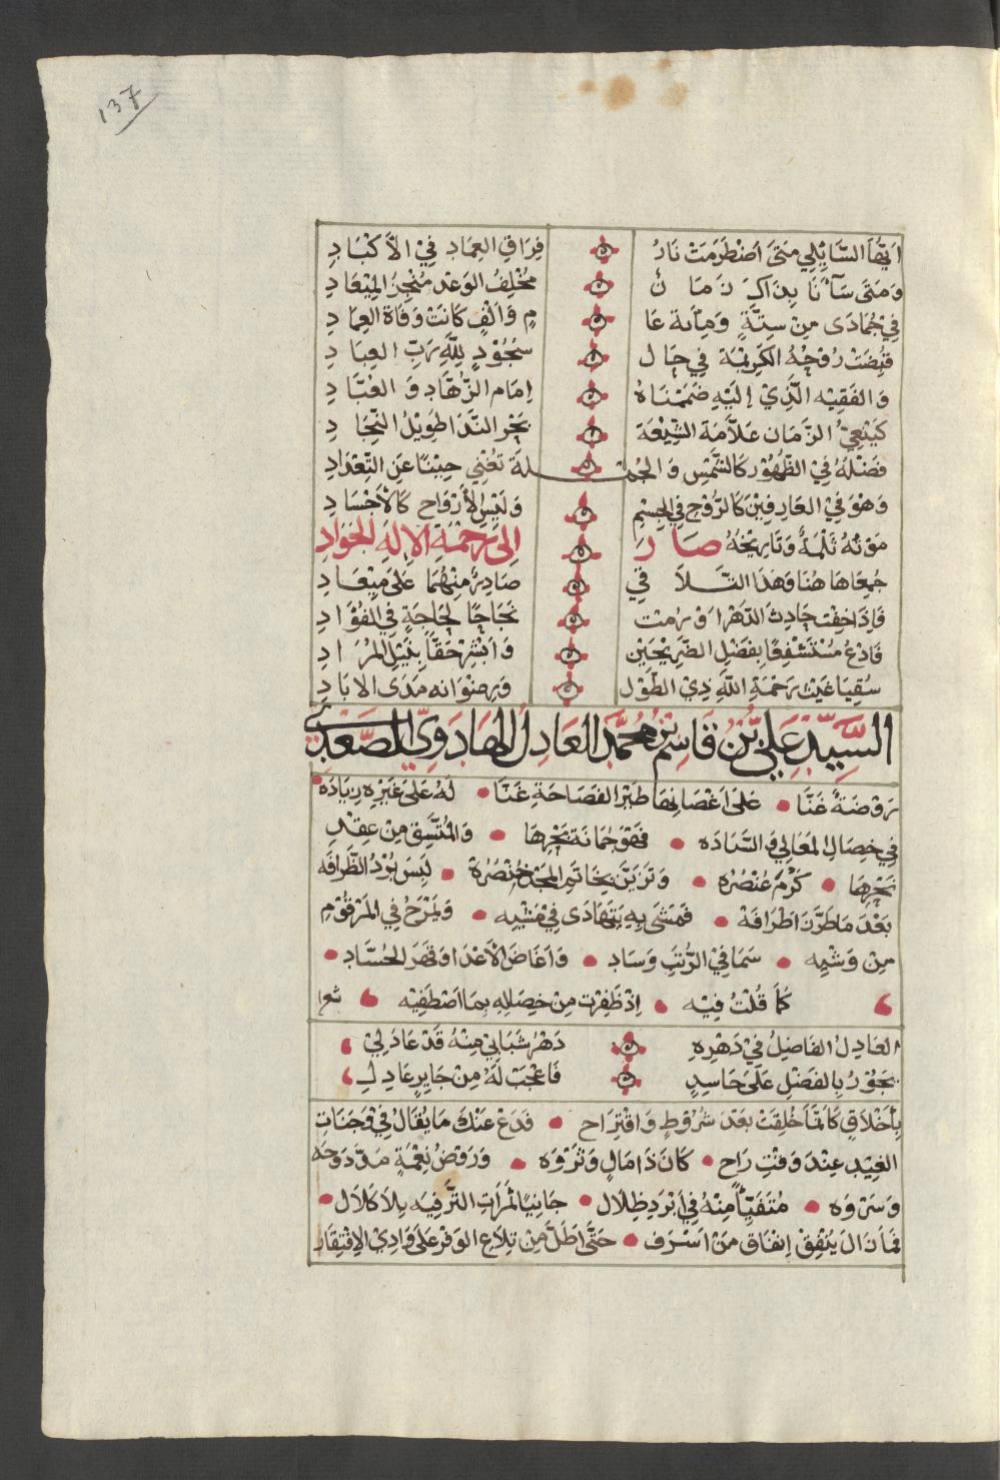 137
ايّها السَّايِلي مَتَى اضْطَرَمَتْ نَارُ فِرَاقِ العِمَادِ فِي الاَكْبَادِ
وَمَتَى سَآءَنَا بِذَاكَ زَمَانٌ مُخْلِفُ الوَعْدِ مُنْجِزُ المِيْعَادِ
فِي جُمَادَى مِنْ سِتَّةٍ وَمِاىة عَا مٍ وَالْفٍ كَانَتْ وَفَاة العِمَادِ
قُبِضَتْ رُوْحُهُ الكَرِيْمَة فِي حَال سُجُوْدٍ لِلّهِ رَبِّ العِبَادِ
وَالفَقِيْه الَّذِيْ إِلَيْهِ ضَمَمْنَاهُ اِمَام الزُّهَّادِ وَالعُبَّادِ
الزَمَان عَلاَّمَة الشِّيْعَة بَحْر النَّدَا طَوِيْلُ النِّجَادِ
فَضْلُهُ فِي الظُّهُوْرِ كَالشَّمْسِ وَالجُمْلَة تُغْنِي حِيْنًا عَنِ التِّعْدَادِ
وَهْوَ فِي العَارِفِيْنَ كَالرُّوْحِ فِي الجِسْمِ وَلَيْسَ الأَرْوَاح كَالأَجْسَادِ
مَوْتُهُ ثَلْمَةٌ وَتَارِيْخُهُ صَارَ اِلَى رَحْمَةِ الاِلَهِ الجَوَادِ
جُمِعَا هَا هُنَا وَهَذَا التَّلاَقِي صَادِرٌ مِنْهُمَا عَلَى مِيْعَادِ
فَاِذَا خِفْتَ حَادِثَ الدَّهْرِ اَوْ رُمْتَ نَجَاحًا لِحَاجَةٍ فِي الفُؤَادِ
فَادْعُ مُسْتَشْفِعًا بِفَضْلِ الضَّرِيْحَيْن وَابْشِرْ حَقًّا بِنَيْلِ المُرَادِ
سُقِيَا غَيْثَ رَحْمَةِ اللهِ ذِي الطَّوْلِ وَرِضْوَانه مَدَى الابَادِ
السَّيِّد عَلِيُّ بْنُ قَاسِم بْنِ مُحَمَّد العَادِل الهَادَوِيّ الصَّعَدِي
رَوْضَةٌ غَنَّا • عَلَى اَغْصَانِهَا طَيْرُ الفَصَاحَةِ غَنَّا • لَهُ عَلَى غَيْرِهِ زِيَادَه •
فِي خِصَالِ المَعَالِي وَالسَّيَادَه • فَهْوَ جُمَانَة بَحْرِهَا • وَالمُتَّسِقُ مِن عِقْدِ
نَحْرِهَا • كَرُمَ عُنْصُرُه • وَتَزَيَّنَ بِخَاتَمِ المَجْدِ خِنْصَرُه • لَبِسَ بُرْدَ الظَّرَافَه
بَعْدَ مَا طَرَّزَ اَطْرَافَهْ • فَمَشَى بِهِ يَتَهَادَى فِي مَشْيِه • وَيَمْرَحُ فِي المَرْقُوْمِ
مِنْ وَشْيِه • سَمَا فِي الرُّتَبِ وَسَادِ • وَاَغَاضَ الأَعْدَا وَقَهَرَ الحُسَّادِ •
كَمَا قُلْتُ فِيْه • اِذْ ظَفِرْت مِنْ خِصَالِهِ بِمَا اصْطَفِيْه • شعرا
العَادِلُ الفَاضِلُ فِي دَهْرِهِ دَهْرُ شَبَابِي مِنْهُ قَدْ عَادَ لِي
يَجُوْرُ بِالفَضْلِ عَلَى حَاسِدٍ فَاعْجَبْ لَهُ مِنْ جَايِرٍ عَادِلِ
بِاَخْلاَقٍ كَاَنَّمَا خُلِقَتْ بَعْدَ شُرُوْطٍ وَاقْتِرَاح • فَدَعْ عَنْكَ مَا يُقَالُ فِي وَجَنَاتِ
الغِيْدِ عِنْدَ وَقْتِ رَاح • كَانَ ذَا مَالٍ وَثَرْوَه • وَرَوْضُ نِعْمَةٍ مَدَّ دَوْحَه
وَسَرْوَه • مُتَفَيِّاً مِنْهُ فِي اَبْرَدِ ظِلاَل • جَانِيًا ثَمَرَاتِ التَّرْفِيَه بِلاَ كَلاَل •
فَمَا زَالَ يُنْفِقُ اِنْفَاق مَنْ اَسْرَف • حَتَّى اَطَلَّ مِنْ تِلاَعِ الوَفْرِ عَلَى وَادِي الاِفْتِقَار